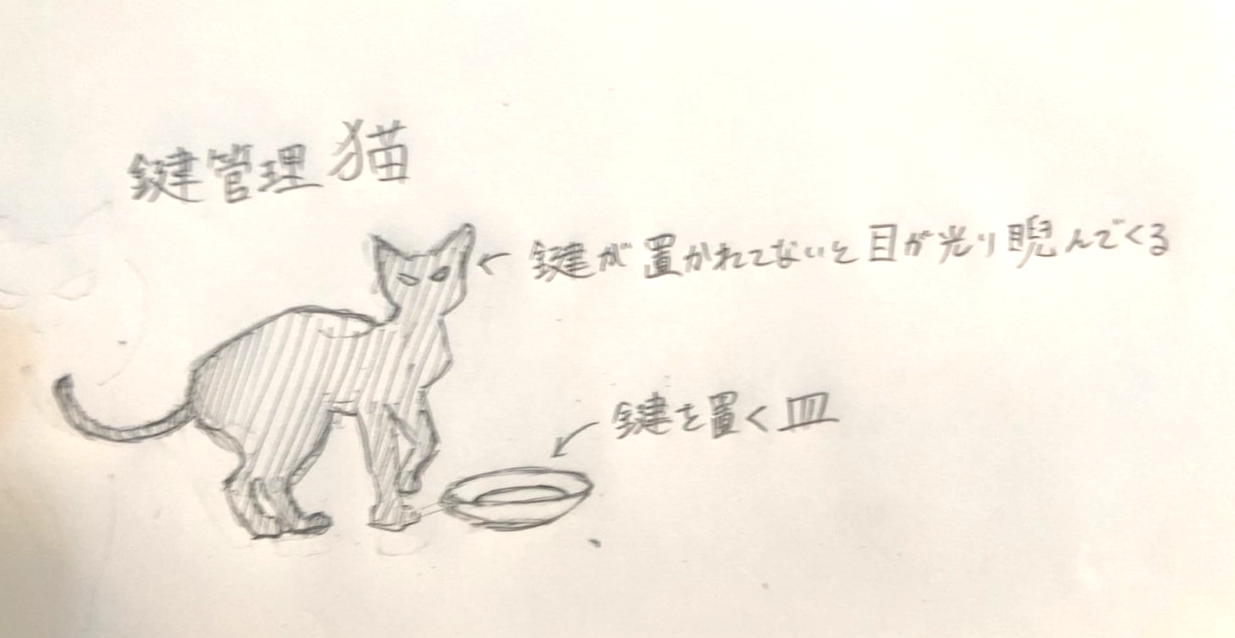 鍵管理猫
鍵が置かれてないと目が光り睨んでくる
鍵を置く皿